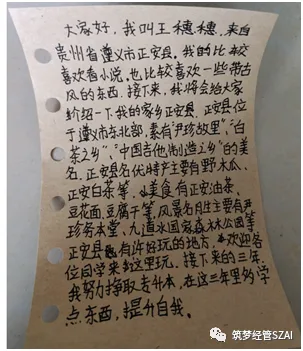 大家好，我叫王穗穗，来自
贵州省遵义市正安县，我的比较
喜欢看小说，也比较喜欢一些带古
风的东西．接下来，我将会给大家
介绍一下我的家乡正安县．正安县位
于遵义市东北部，素有“尹珍故里”，“白
茶之乡”，“中国吉他制造之乡”的美
名，正安县名优特产主要有野木瓜、
正安白茶等．美食有正安油茶、
豆花面、豆腐干等，风景名胜主要有尹
珍务本堂、九道水国家森林公园等
正安县有许好玩的地方．欢迎各
位同学来到这里玩．接下来的三年，
我努力争取专升本，在这三年里多学
点东西，提升自我．
筑梦经管SZAI